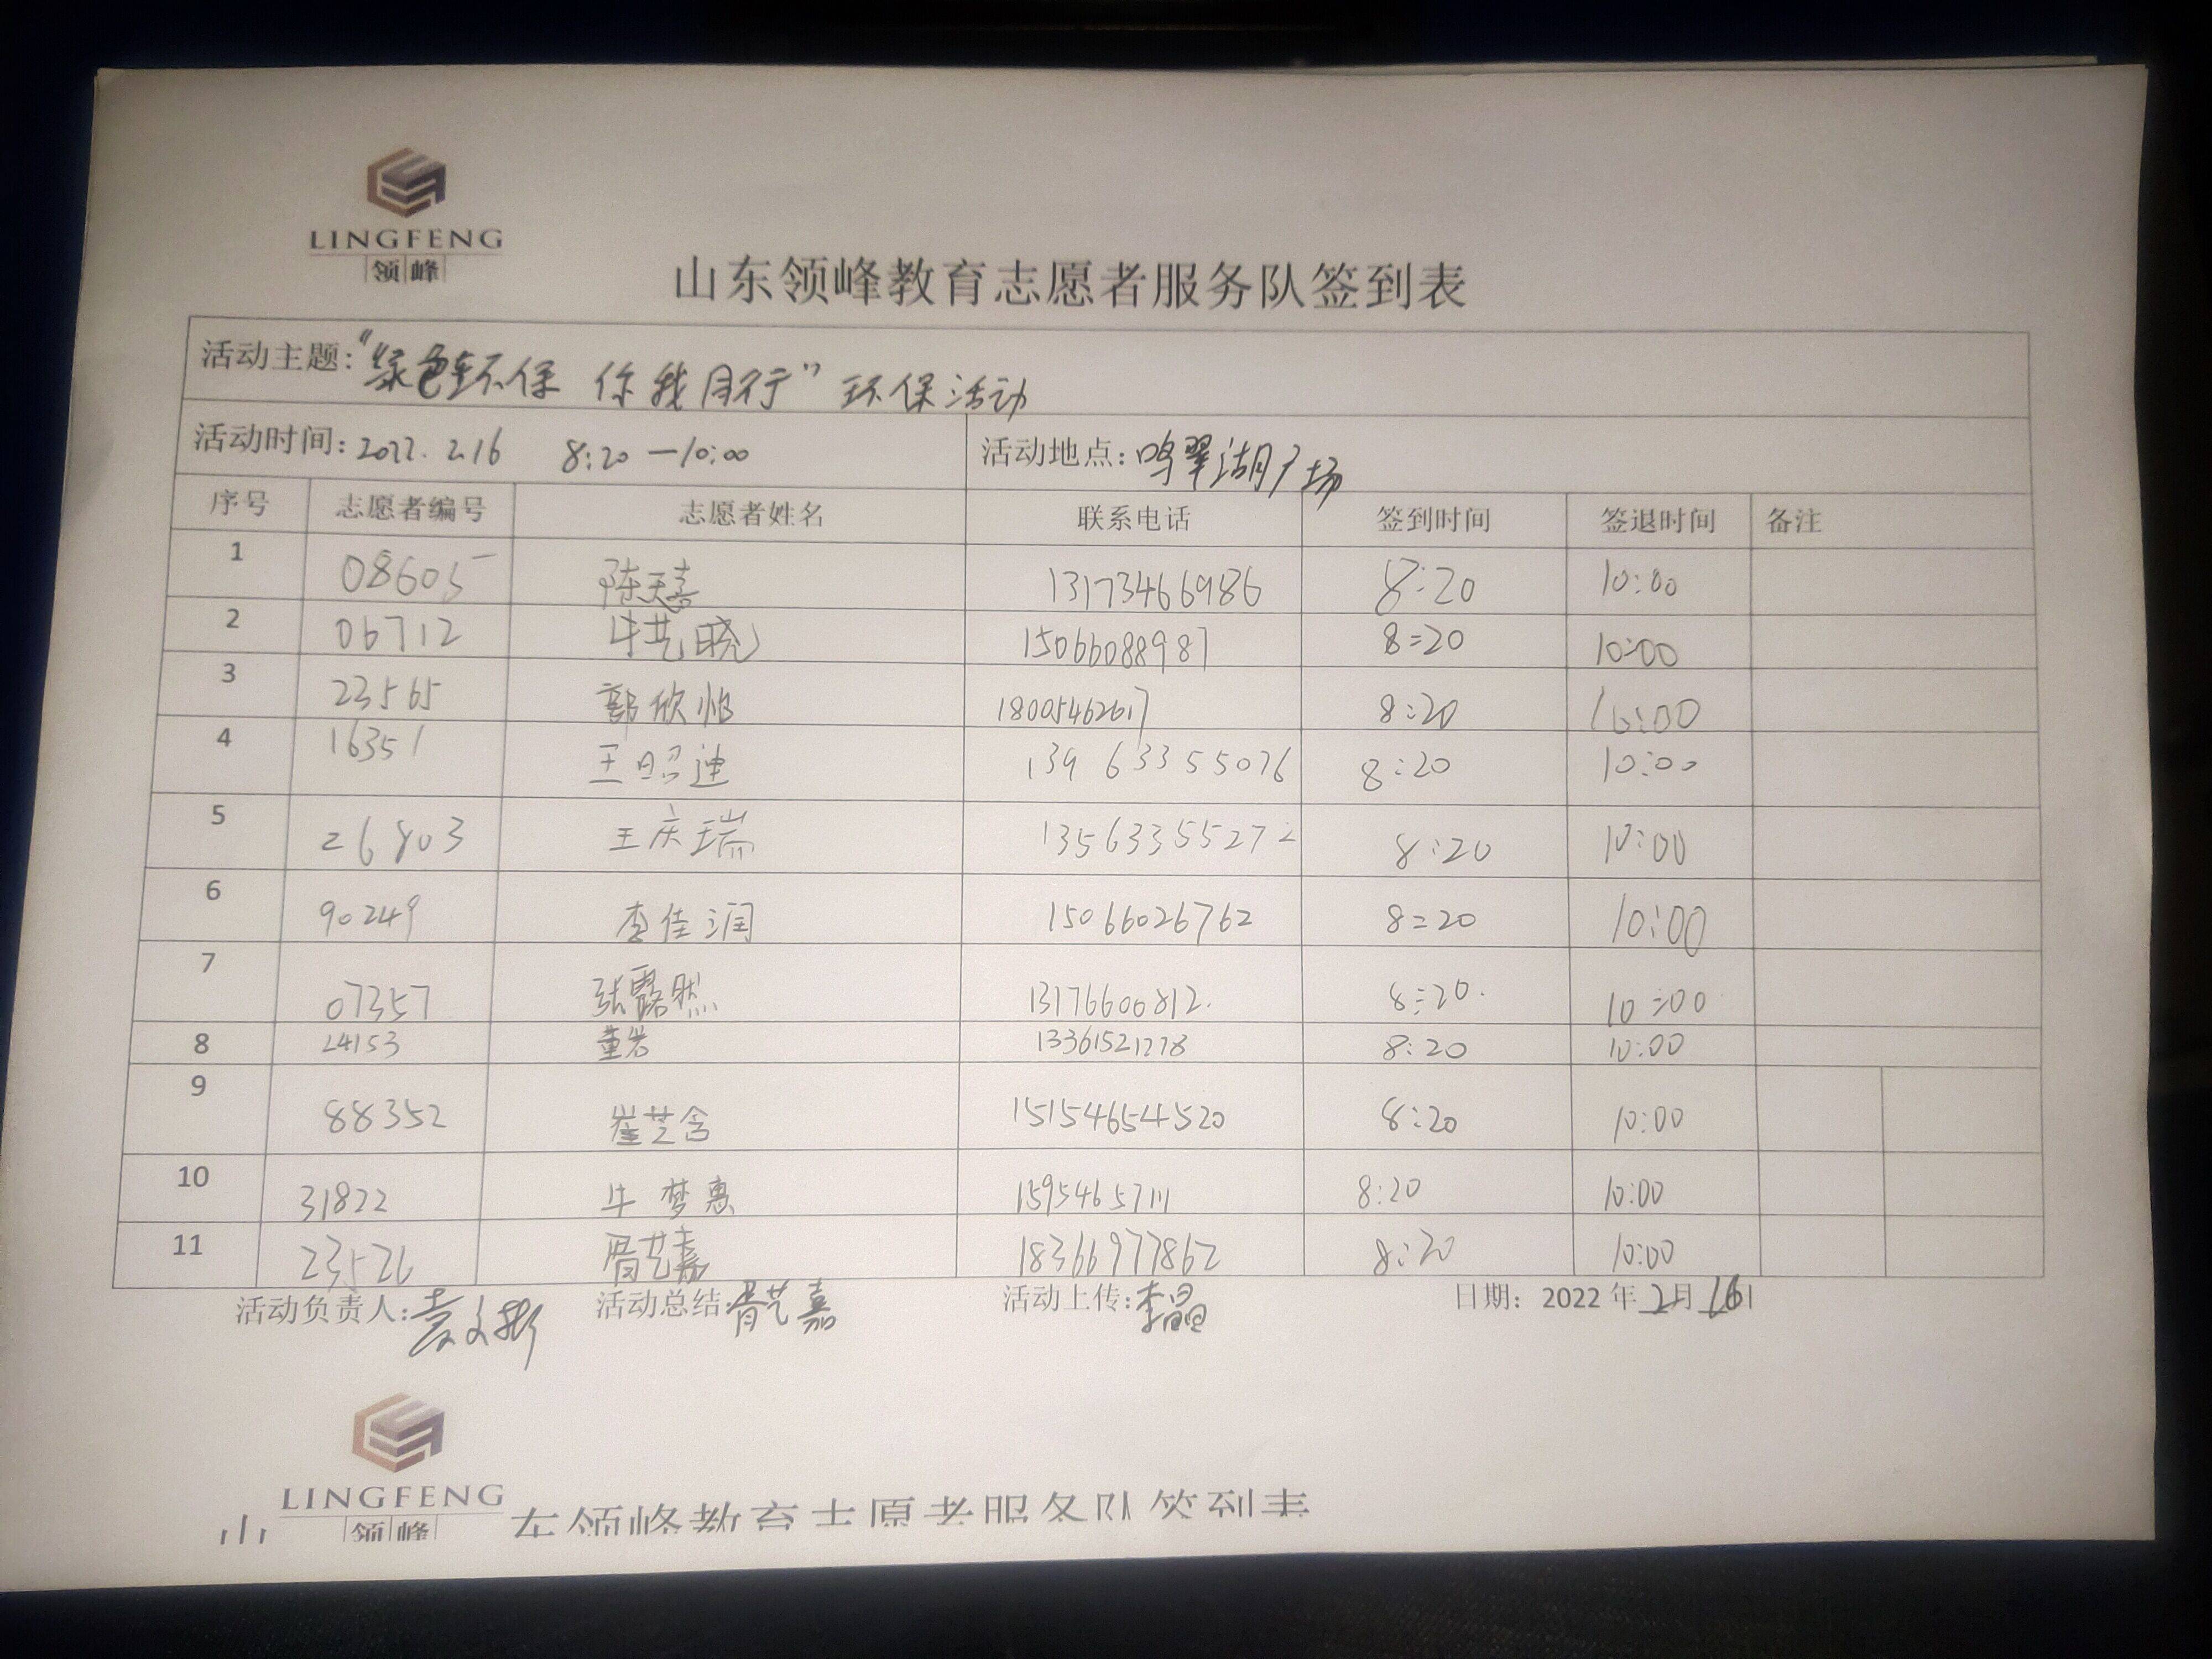 LINGFENG
领峰
山东领峰教育志愿者服务队签到表
活动主题：“绿色环保 你我同行”环保活动
活动时间：2022.2.16 8:20—10:00 活动地点：鸣翠湖广场
序号 志愿者编号 志愿者姓名 联系电话 签到时间 签退时间 备注
1 08605 陈天嘉 13173466986 8:20 10:00
2 06712 牛艺晓 15066088987 8:20 10:00
3 23565 郭欣怡 18005462617 8:20 10:00
4 16351 王昭迪 13963355076 8:20 10:00
5 26803 王庆瑞 13563355272 8:20 10:00
6 90249 李佳润 15066026762 8:20 10:00
7 07357 张露然 13176600812. 8:20. 10:00
8 24153 董岩 13361521278 8:20 10:00
9 88352 崔芝含 15154654520 8:20 10:00
10 31822 牛梦惠 15954657111 8:20 10:00
11 23526 胥艺嘉 18366977862 8:20 10:00
活动负责人：袁文彬 活动总结：胥艺嘉 活动上传：李晶 日期：2022年2月16日
LINGFENG
领峰
山东领峰教育志愿者服务队签到表